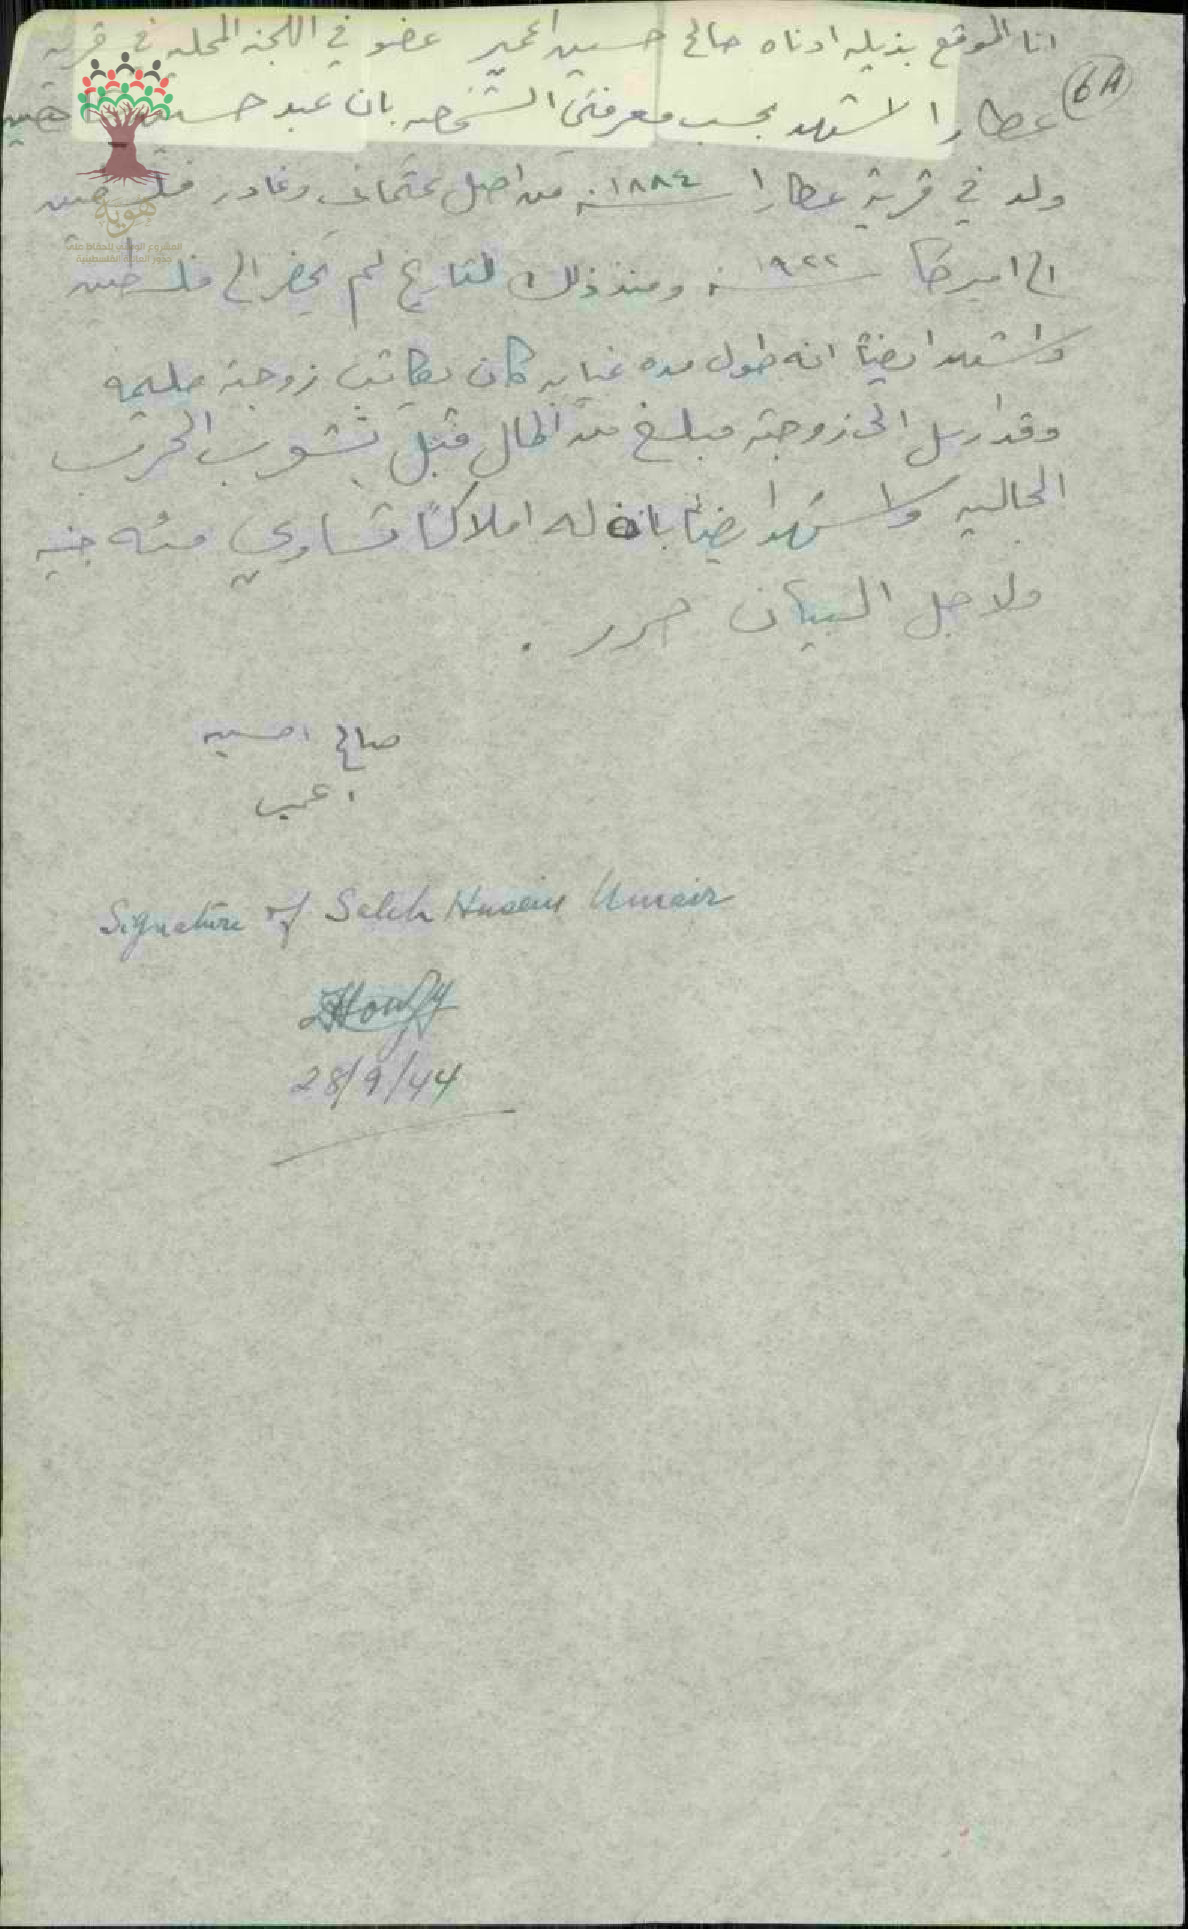 6A
انا الموقع بذيله ادناه صالح حسين اعمير عضو في اللجنه المحليه في قرية
عطارا لاشهد بحسب معرفتي الشخصيه بان عبد حسين
ولد في قرية عطارا سنة ١٨٨٤ من اصل عثماني وغادر فلسطين
الى اميركا سنة ١٩٢٢ ومنذ ذلك التاريخ لم يحضر الى فلسطين
واشهد ايضاً انه طول مده غيابه كان يكاتب زوجته حليمه
وقد ارسل الى زوجته مبلغ من المال قبل نشوب الحرب
الحاليه واشهد ايضاً بان له املاكاً تساوي مئه جنيه
ولاجل البيان حرر .
صالح احسين
اعمير
Signature of Saleh Husein Umair
28/9/44
هوية
المشروع الوطني للحفاظ على
جذور العائلة الفلسطينية